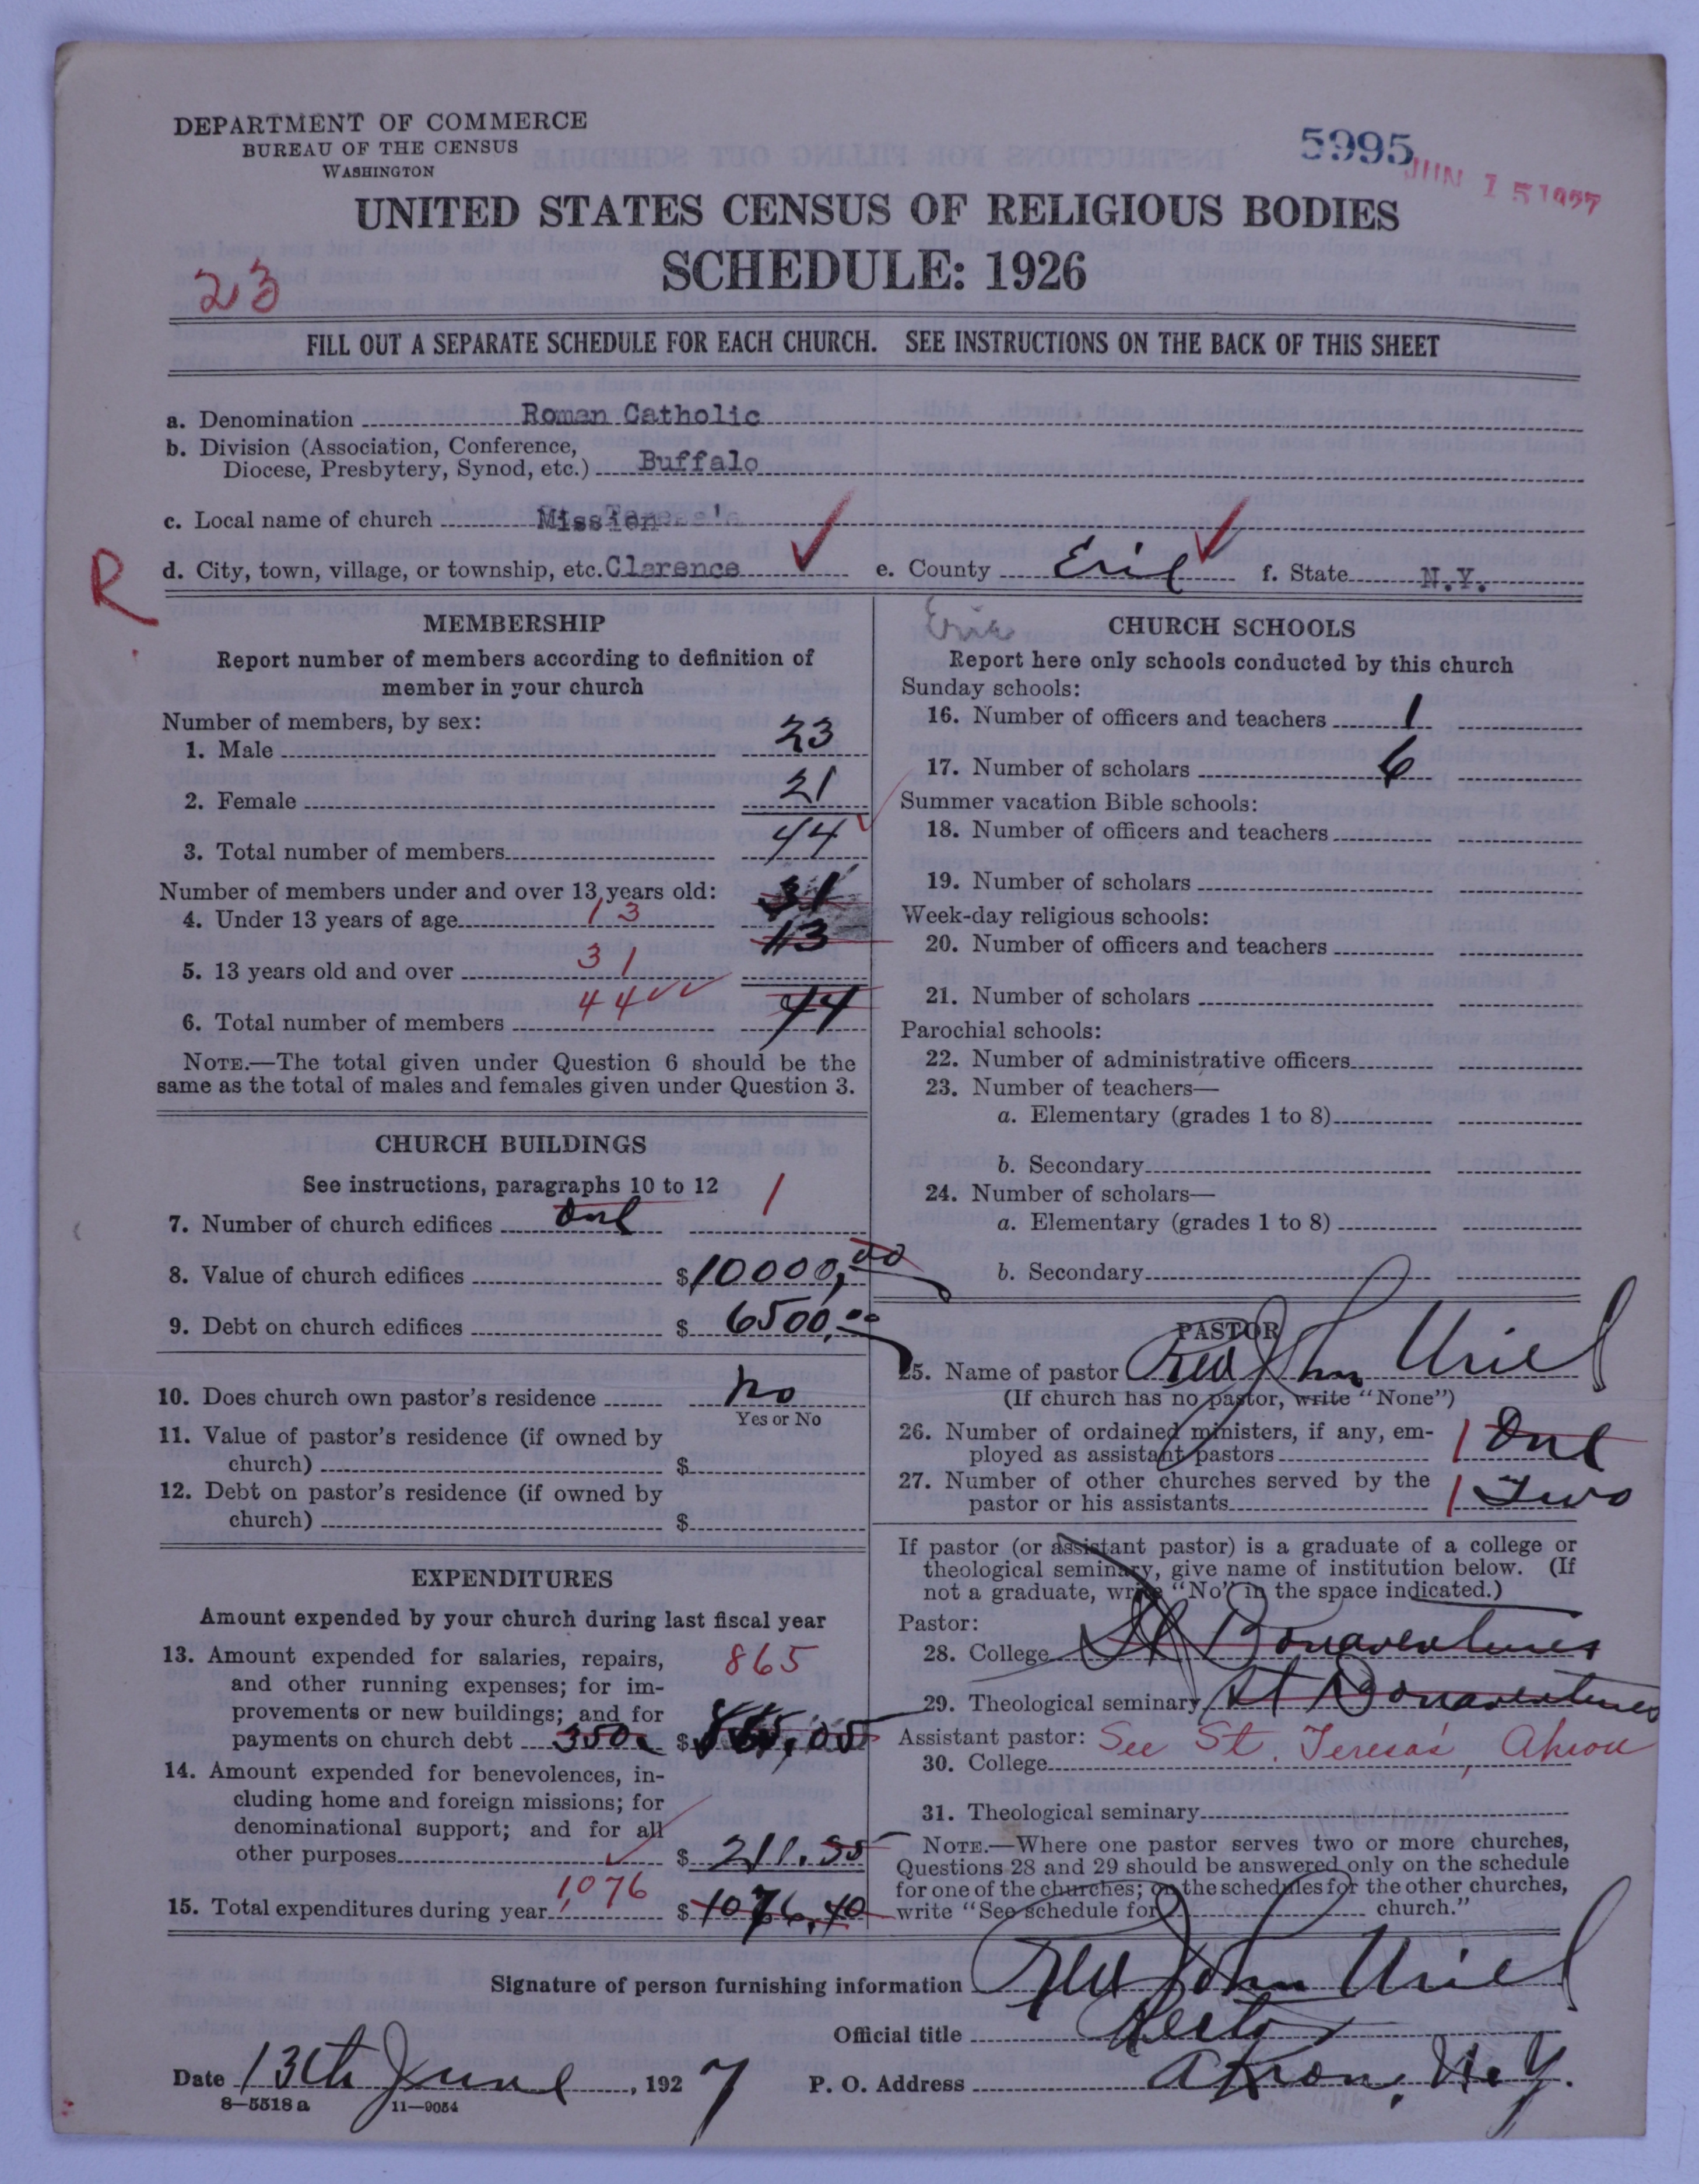 DEPARTMENT OF COMMERCE
BUREAU OF THE CENSUS
WASHINGTON
5995
JUN 15 1927
UNITED STATES CENSUS OF RELIGIOUS BODIES
SCHEDULE: 1926
23
FILL OUT A SEPARATE SCHEDULE FOR EACH CHURCH. SEE INSTRUCTIONS ON THE BACK OF THIS SHEET
a. Denomination Roman Catholic
b. Division (Association, Conference,
Diocese, Presbytery, Synod, etc.) Buffalo
c. Local name of church Mission
R
d. City, town, village, or township, etc. Clarence e. County Erie f. State N.Y.
MEMBERSHIP
Report number of members according to definition of
member in your church
Number of members, by sex:
1. Male 23
2. Female 21
3. Total number of members 44
Number of members under and over 13 years old: 31
4. Under 13 years of age 13 13
5. 13 years old and over 31
6. Total number of members 44 44
NOTE.—The total given under Question 6 should be the
same as the total of males and females given under Question 3.
CHURCH BUILDINGS
See instructions, paragraphs 10 to 12
7. Number of church edifices One 1
8. Value of church edifices $10000,00
9. Debt on church edifices $6500.00
10. Does church own pastor's residence No
Yes or No
11. Value of pastor's residence (if owned by
church) $
12. Debt on pastor's residence (if owned by
church) $
EXPENDITURES
Amount expended by your church during last fiscal year
13. Amount expended for salaries, repairs, 865
and other running expenses; for im-
provements or new buildings; and for
payments on church debt 350 $865,05
14. Amount expended for benevolences, in-
cluding home and foreign missions; for
denominational support; and for all
other purposes $211.35
15. Total expenditures during year 1,076 $1076.40
Erie
CHURCH SCHOOLS
Report here only schools conducted by this church
Sunday schools:
16. Number of officers and teachers 1
17. Number of scholars 6
Summer vacation Bible schools:
18. Number of officers and teachers
19. Number of scholars
Week-day religious schools:
20. Number of officers and teachers
21. Number of scholars
Parochial schools:
22. Number of administrative officers
23. Number of teachers—
a. Elementary (grades 1 to 8)
b. Secondary
24. Number of scholars—
a. Elementary (grades 1 to 8)
b. Secondary
PASTOR
25. Name of pastor Rev John Uriel
(If church has no pastor, write "None")
26. Number of ordained ministers, if any, em-
ployed as assistant pastors 1 One
27. Number of other churches served by the
pastor or his assistants 1 Two
If pastor (or assistant pastor) is a graduate of a college or
theological seminary, give name of institution below. (If
not a graduate, write "No" in the space indicated.)
Pastor:
28. College St Bonaventures
29. Theological seminary St Bonaventures
Assistant pastor: See St. Teresa's, Akron
30. College
31. Theological seminary
NOTE.—Where one pastor serves two or more churches,
Questions 28 and 29 should be answered only on the schedule
for one of the churches; on the schedules for the other churches,
write "See schedule for church."
Signature of person furnishing information Rev John Uriel
Official title Rector
Date 13th June, 1927 P. O. Address Akron, N.Y.
8—5518 a 11—9054